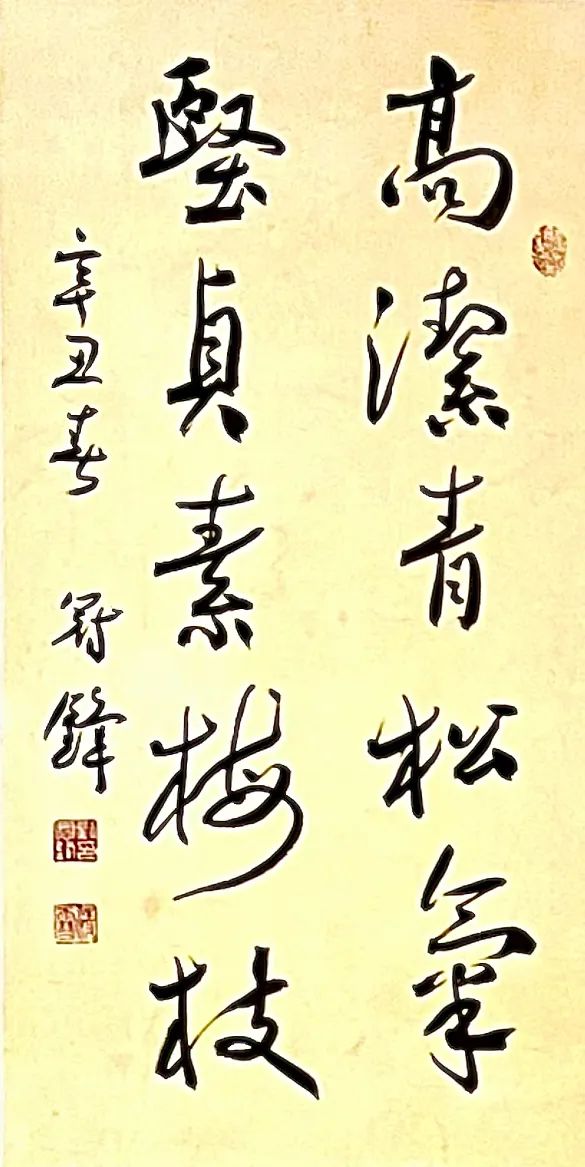 高潔青松氣
堅貞素梅枝
辛丑春 冠鋒